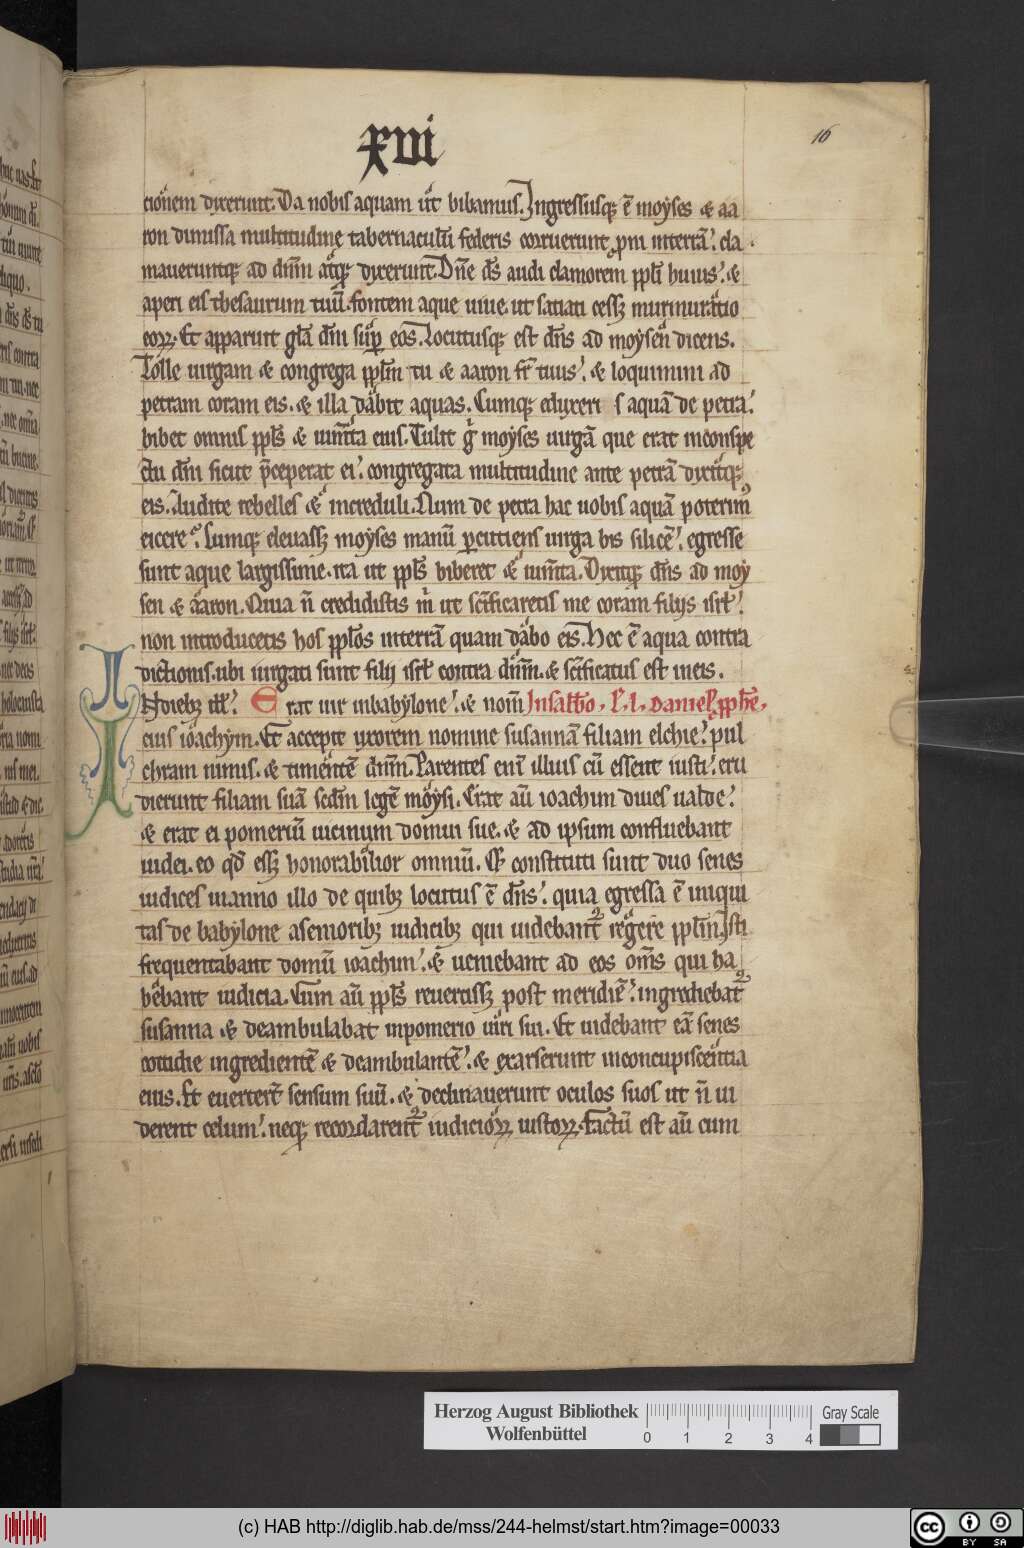 xvi
16
cionem dixerunt. Da nobis aquam ut bibamus. Ingressusq; ē moyses & aa
ron dimissa multitudine tabernaculū federis corruerunt proni interrā. cla
maueruntq; ad dn̄m atq; dixerunt. Dn̄e ds̄ audi clamorem ppl̄i huius. &
aperi eis thesaurum tuū. fontem aque uiue. ut satiati cess; murmuratio
eoꝝ. Et apparuit gl̄a dn̄i sup eos. Locutusq; est dn̄s ad moysen dicens.
Tolle uirgam & congrega ppl̄m tu & aaron fr̄ tuus. & loquimini ad
petram coram eis. & illa dabit aquas. Cumq; eduxeri s aquā de petra.
bibet omnis ppl̄s & ium̄ta eius. Tulit g̊ moyses uirgā que erat inconspe
ctu dn̄i sicut p̄ceperat ei. congregata multitudine ante petrā dixitq;
eis. Audite rebelles & increduli. Num de petra hac uobis aquā poterimꝰ
eicere. Cumq; eleuass; moyses manū ꝑcutiens uirga bis silicē. egresse
sunt aque largissime. ita ut ppl̄s biberet & ium̄ta. Dixitq; dn̄s ad moy
sen & aaron. Quia n̄ credidistis m̄ ut sc̄ificaretis me coram filijs isrl̄.
non introducetis hos ppl̄os interrā quam dabo eis. Hec ē aqua contra
dictionis. ubi iurgati sunt filij isrl̄ contra dn̄m. & sc̄ificatus est ineis.
INdieb; ill̄. Erat uir inbabylone. & nom̄ In sabb̄o. l. danielꝭ pph̄e.
eius ioachym. Et accepit uxorem nomine susannā filiam elchie. pul
chram nimis. & timentē dn̄m. Parentes eni illius cū essent iusti. eru
dierunt filiam suā scdm̄ legē moysi. Erat aū ioachim diues ualde.
& erat ei pomeriū uicinum domui sue. & ad ipsum confluebant
iudei. eo qd̄ ess; honorabilior omniū. Et constituti sunt duo senes
iudices inanno illo de quib; locutus ē dn̄s. quia egressa ē iniqui
tas de babylone asenioribꝫ iudicib; qui uidebantᷣ regere ppl̄m. Isti
frequentabant domū ioachim. & ueniebant ad eos om̄s qui ha
bebant iudicia. Cum aū ppl̄s reuertiss; post meridiē. ingrediebatᷣ
susanna & deambulabat inpomerio uiri sui. Et uidebant eā senes
cottidie ingredientē & deambulantē. & exarserunt inconcupiscentia
eius. Et euertert̄ sensum suū. & declinauerunt oculos suos ut n̄ ui
derent celum. neq; recordarentᷣ iudicioꝝ iustoꝝ. Factū est aū cum
Herzog August Bibliothek
Wolfenbüttel
0 1 2 3 4
Gray Scale
(c) HAB http://diglib.hab.de/mss/244-helmst/start.htm?image=00033
cc BY SA